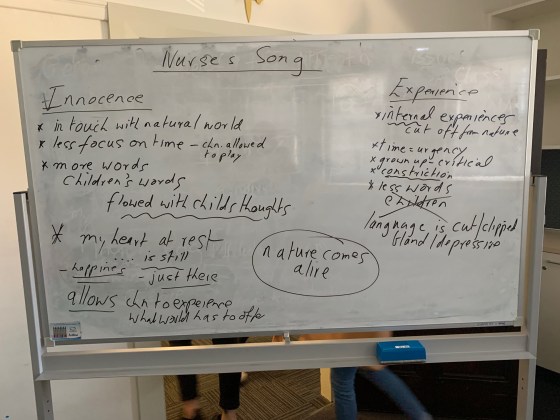 Nurse's Song
Innocence
* in touch with natural world
* less focus on time – chn. allowed
to play
* more words
Children's words
flowed with childs thoughts
* my heart at rest
..... is still
– happines – just there
allows chn to experience
what world has to offe
nature comes
alive
Experience
* internal experiences
cut off from nature
* time = urgency
* grown up = critical
* constriction
* less words
children
language is cut/clipped
bland/depressive